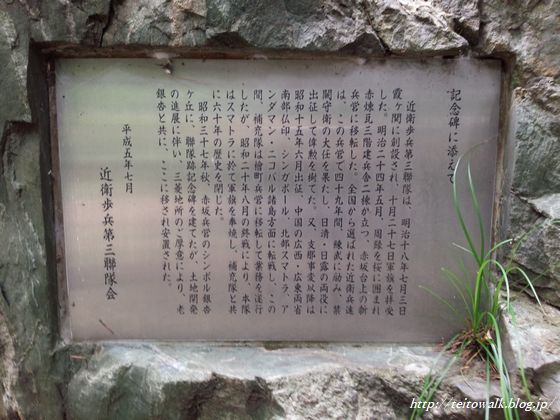 記念碑に添えて
近衛歩兵第三聯隊は、明治十八年七月三日
霞ヶ関に創設され、十月二十七日軍旗を拝受
した。明治二十四年五月、周縁を桜に囲まれ
赤煉瓦三階建兵舎二棟が立つ赤坂台上の新
兵営に移転した。全国から選ばれた近衛兵達
は、この兵営で四十九年間、練武に励み、禁
闕守衛の大任を果たし、日清・日露の両役に
出征して偉勲を樹てた。又、支那事変以降は
昭和十五年六月出征、中国の広西・広東両省
南部仏印、シンガポール、北部スマトラ、ア
ンダマン・ニコバル諸島方面に転戦し、この
間、補充隊は檜町兵営に移転して業務を遂行
したが、昭和二十年八月の終戦により、本隊
はスマトラに於て軍旗を奉焼し、補充隊と共
に六十年の歴史を閉じた。
昭和三十七年秋、赤坂兵営のシンボル銀杏
ヶ丘に、聯隊跡記念碑を建てたが、土地開発
の進展に伴い、三菱地所のご厚意により、老
銀杏と共に、ここに移され安置された。
平成五年七月
近衛歩兵第三聯隊会
http://teitowalk.blog.jp/